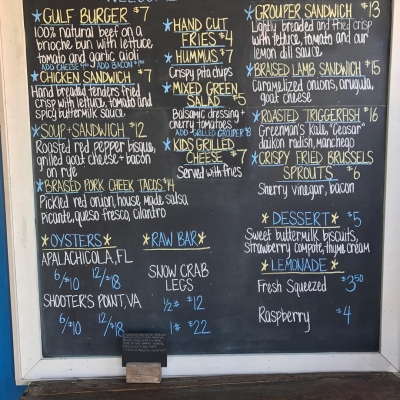 GULF BURGER $7
100% natural beef on a
brioche bun with lettuce
tomato and garlic aioli
CHICKEN SANDWICH $7
Hand breaded tenders fried
crisp with lettuce, tomato and
spicy buttermilk sauce
SOUP + SANDWICH $12
Roasted red pepper bisque,
grilled goat cheese + bacon
on rye
BRAISED PORK CHEEK TACOS $14
Pickled red onion, house made salsa
picante, queso fresco, cilantro
HAND CUT
FRIES $4
HUMMUS $7
Crispy pita chips
MIXED GREEN
SALAD $5
Balsamic dressing +
cherry tomatoes
ADD GRILLED GROUPER $8
KIDS GRILLED
CHEESE $7
Served with fries
GROUPER SANDWICH $13
Lightly breaded and fried crisp
with lettuce, tomato and our
lemon dill sauce
BRAISED LAMB SANDWICH $15
Caramelized onions, arugula,
goat cheese
ROASTED TRIGGERFISH $16
Greenman's kale, "Ceasar"
daikon radish, manchego
CRISPY FRIED BRUSSELS
SPROUTS $6
Sherry vinegar, bacon
DESSERT $5
Sweet buttermilk biscuits,
strawberry compote, thyme cream
LEMONADE
Fresh Squeezed $3.50
Raspberry $4
OYSTERS
APALACHICOLA, FL
6/$10 12/$18
SHOOTER'S POINT, VA
6/$10 12/$18
RAW BAR
SNOW CRAB
LEGS
1/2# $12
1# $22